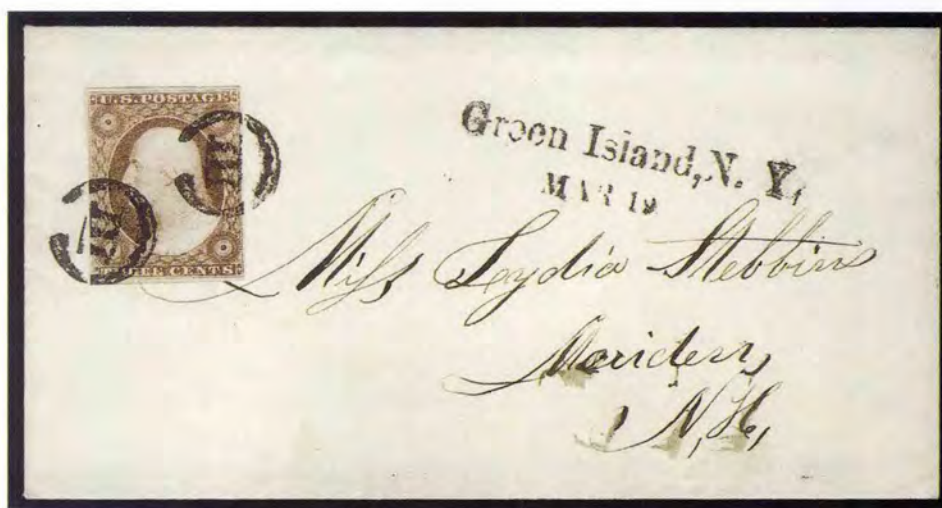 U.S. POSTAGE
THREE CENTS
Green Island, N. Y.
MAR 19
Miss Lydia Stebbins
Meriden,
N,H,